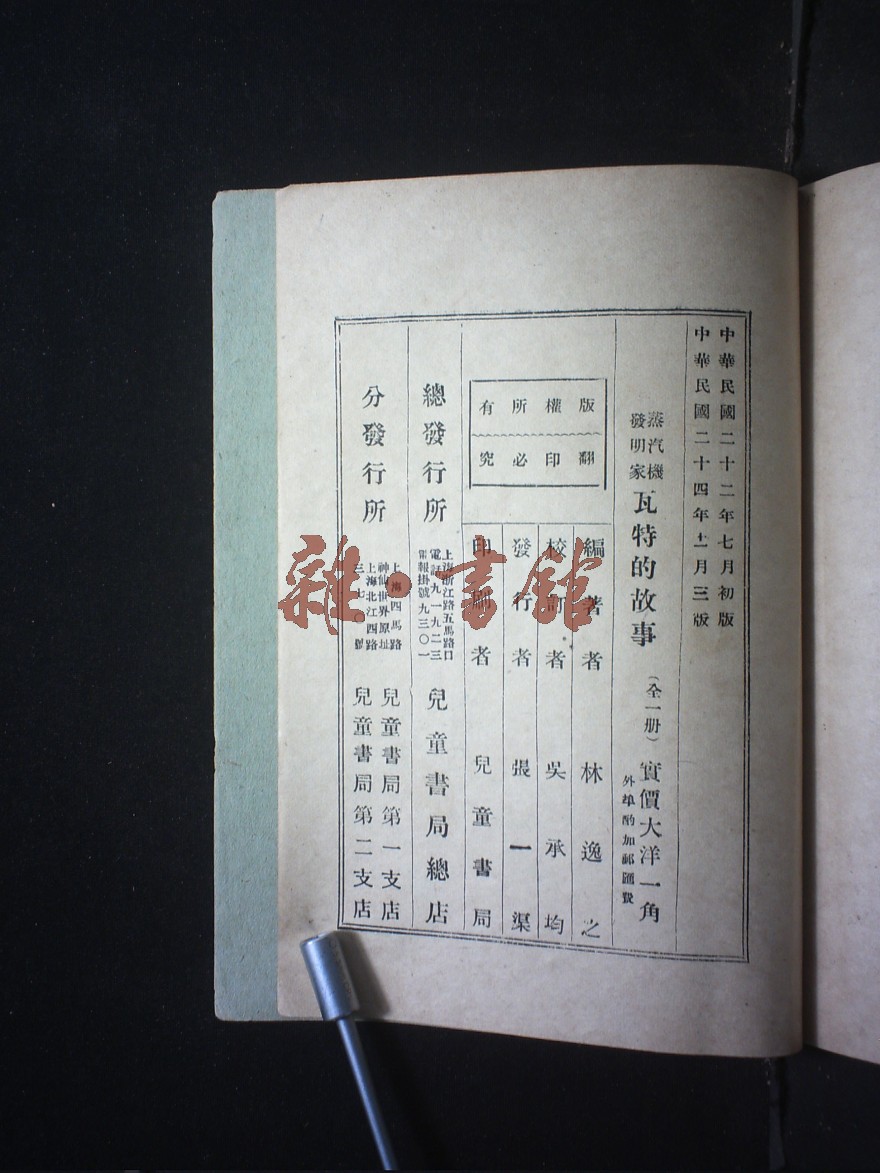 中華民國二十二年七月初版
中華民國二十四年十一月三版
蒸汽機
發明家
瓦特的故事
(全一册)
實價大洋一角
外埠酌加郵匯費
版權所有
翻印必究
編著者 林逸之
校訂者 吳承均
發行者 張一渠
印刷者 兒童書局
總發行所
上海浙江路五馬路口
電話九一九二三
電報掛號九三〇一
兒童書局總店
分發行所
上海四馬路
神仙世界原址
兒童書局第一支店
上海北江西路
三七〇號
兒童書局第二支店
雜·書館